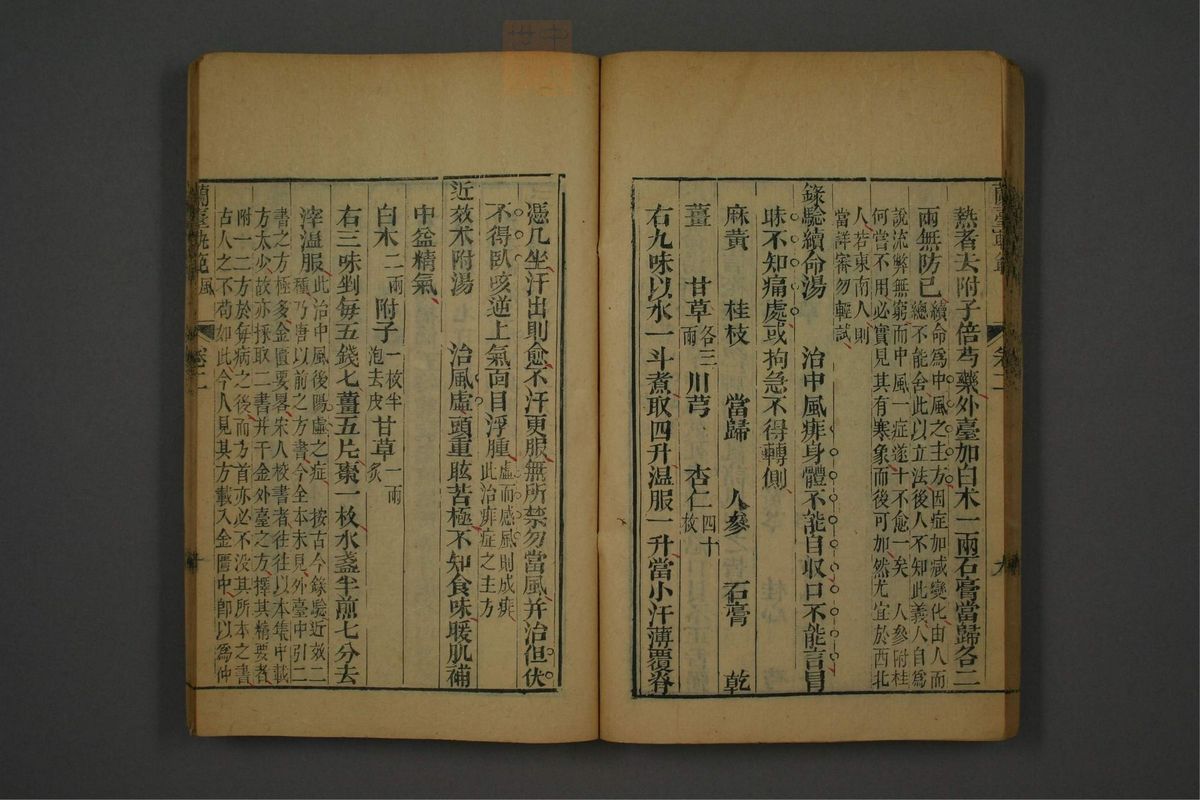 熱者去附子倍芍藥外臺加白朮一兩石膏當歸各二
兩無防已續命爲中風之主方因症加減變化由人而
總不能舍此以立法後人不知此義人自爲
說流弊無窮而中風一症遂十不愈一矣 人參附桂
何嘗不用必實見其有寒象而後可加然尤宜於西北
人若東南人則
當詳審勿輕試
錄驗續命湯 治中風痱身體不能自収口不能言冒
昧不知痛處或拘急不得轉側
麻黃 桂枝 當歸 人參 石膏 乾
薑 甘草各三兩 川芎 杏仁四十枚
右九味以水一斗煮取四升温服一升當小汗薄覆脊
憑几坐汗出則愈不汗更服無所禁勿當風并治但伏
不得臥咳逆上氣面目浮腫虛而感風則成痱
此治痱症之主方
近效朮附湯 治風虛頭重眩苦極不知食味暖肌補
中益精氣
白朮二兩 附子一枚半炮去皮 甘草一兩炙
右三味剉每五錢匕薑五片棗一枚水盞半煎七分去
滓温服此治中風後陽虛之症 按古今錄驗近效二
種乃唐以前之方書今全本未見外臺中引二
書之方極多金匱要畧宋人校書者往往以本集中載
方太少故亦採取二書并千金外臺之方擇其精要者
附一二方於每病之後而方首亦必不没其所本之書
古人之不苟如此今人見其方載入金匱中卽以爲仲
蘭臺軌範風
卷一
蘭臺軌範
卷一
九